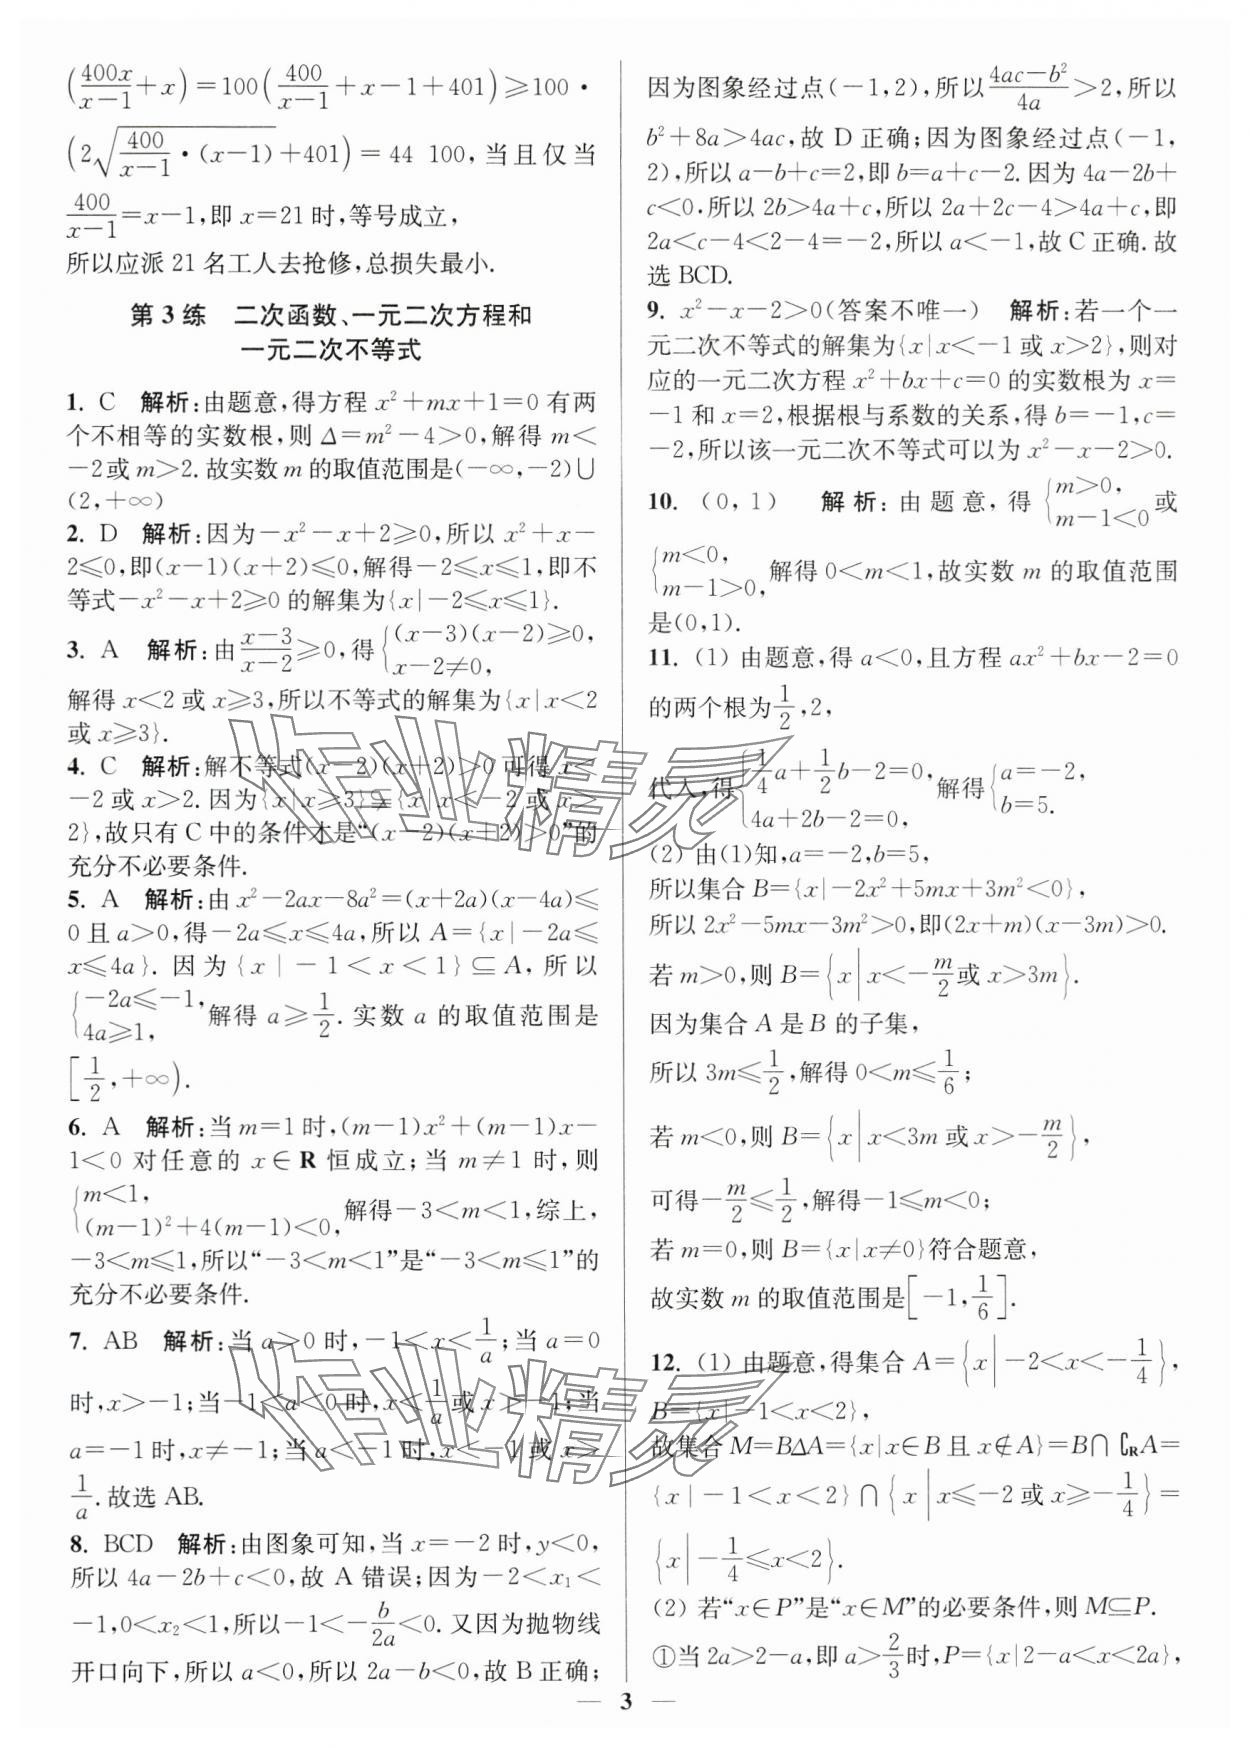 (400x/(x-1)+x)=100(400/(x-1)+x-1+401)≥100·
(2√(400/(x-1)·(x-1))+401)=44 100,当且仅当
400/(x-1)=x-1,即 x=21时,等号成立,
所以应派 21 名工人去抢修,总损失最小.
第3练 二次函数、一元二次方程和
一元二次不等式
1. C 解析:由题意,得方程 x²+mx+1=0 有两
个不相等的实数根,则 Δ=m²-4>0,解得 m<
-2或 m>2.故实数 m 的取值范围是(-∞,-2)∪
(2,+∞)
2. D 解析:因为-x²-x+2≥0,所以 x²+x-
2≤0,即(x-1)(x+2)≤0,解得-2≤x≤1,即不
等式-x²-x+2≥0的解集为{x|-2≤x≤1}.
3. A 解析:由(x-3)/(x-2)≥0,得{(x-3)(x-2)≥0, x-2≠0,
解得 x<2 或 x≥3,所以不等式的解集为{x|x<2
或 x≥3}.
4. C 解析:解不等式(x-2)(x+2)>0可得 x<
-2或 x>2.因为{x|x≥3}⫋{x|x<-2 或 x>
2},故只有 C 中的条件才是“(x-2)(x+2)>0”的
充分不必要条件.
5. A 解析:由 x²-2ax-8a²=(x+2a)(x-4a)≤
0且 a>0,得-2a≤x≤4a,所以 A={x|-2a≤
x≤4a}. 因为{x|-1<x<1}⊆A,所以
{-2a≤-1, 4a≥1, 解得 a≥1/2.实数 a 的取值范围是
[1/2,+∞).
6. A 解析:当 m=1 时,(m-1)x²+(m-1)x-
1<0 对任意的 x∈R 恒成立;当 m≠1 时,则
{m<1, (m-1)²+4(m-1)<0, 解得-3<m<1,综上,
-3<m≤1,所以“-3<m<1”是“-3<m≤1”的
充分不必要条件.
7. AB 解析:当 a>0 时,-1<x<1/a;当 a=0
时,x>-1;当-1<a<0时,x<1/a或 x>-1;当
a=-1 时,x≠-1;当 a<-1 时,x<-1 或 x>
1/a.故选 AB.
8. BCD 解析:由图象可知,当 x=-2 时,y<0,
所以 4a-2b+c<0,故 A 错误;因为-2<x₁<
-1,0<x₂<1,所以-1<-b/2a<0. 又因为抛物线
开口向下,所以 a<0,所以 2a-b<0,故 B 正确;
因为图象经过点(-1,2),所以(4ac-b²)/4a>2,所以
b²+8a>4ac,故 D 正确;因为图象经过点(-1,
2),所以 a-b+c=2,即 b=a+c-2.因为 4a-2b+
c<0.所以 2b>4a+c,所以 2a+2c-4>4a+c,即
2a<c-4<2-4=-2,所以 a<-1,故 C 正确.故
选 BCD.
9. x²-x-2>0(答案不唯一) 解析:若一个一
元二次不等式的解集为{x|x<-1或 x>2},则对
应的一元二次方程 x²+bx+c=0 的实数根为 x=
-1 和 x=2,根据根与系数的关系,得 b=-1,c=
-2,所以该一元二次不等式可以为 x²-x-2>0.
10. (0,1) 解析:由题意,得{m>0, m-1<0 或
{m<0, m-1>0, 解得 0<m<1,故实数 m 的取值范围
是(0,1).
11. (1) 由题意,得 a<0,且方程 ax²+bx-2=0
的两个根为1/2,2,
代入,得{1/4a+1/2b-2=0, 4a+2b-2=0, 解得{a=-2, b=5.
(2) 由(1)知,a=-2,b=5,
所以集合 B={x|-2x²+5mx+3m²<0},
所以 2x²-5mx-3m²>0,即(2x+m)(x-3m)>0.
若 m>0,则 B={x|x<-m/2或 x>3m}.
因为集合 A 是 B 的子集,
所以 3m≤1/2,解得 0<m≤1/6;
若 m<0,则 B={x|x<3m 或 x>-m/2},
可得-m/2≤1/2,解得-1≤m<0;
若 m=0,则 B={x|x≠0}符合题意,
故实数 m 的取值范围是[-1,1/6].
12. (1) 由题意,得集合 A={x|-2<x<-1/4},
B={x|-1<x<2},
故集合 M=BΔA={x|x∈B 且 x∉A}=B∩∁RA=
{x|-1<x<2}∩{x|x≤-2 或 x≥-1/4}=
{x|-1/4≤x<2}.
(2) 若“x∈P”是“x∈M”的必要条件,则 M⊆P.
①当 2a>2-a,即 a>2/3时,P={x|2-a<x<2a},
— 3 —
作业精灵
作业精灵